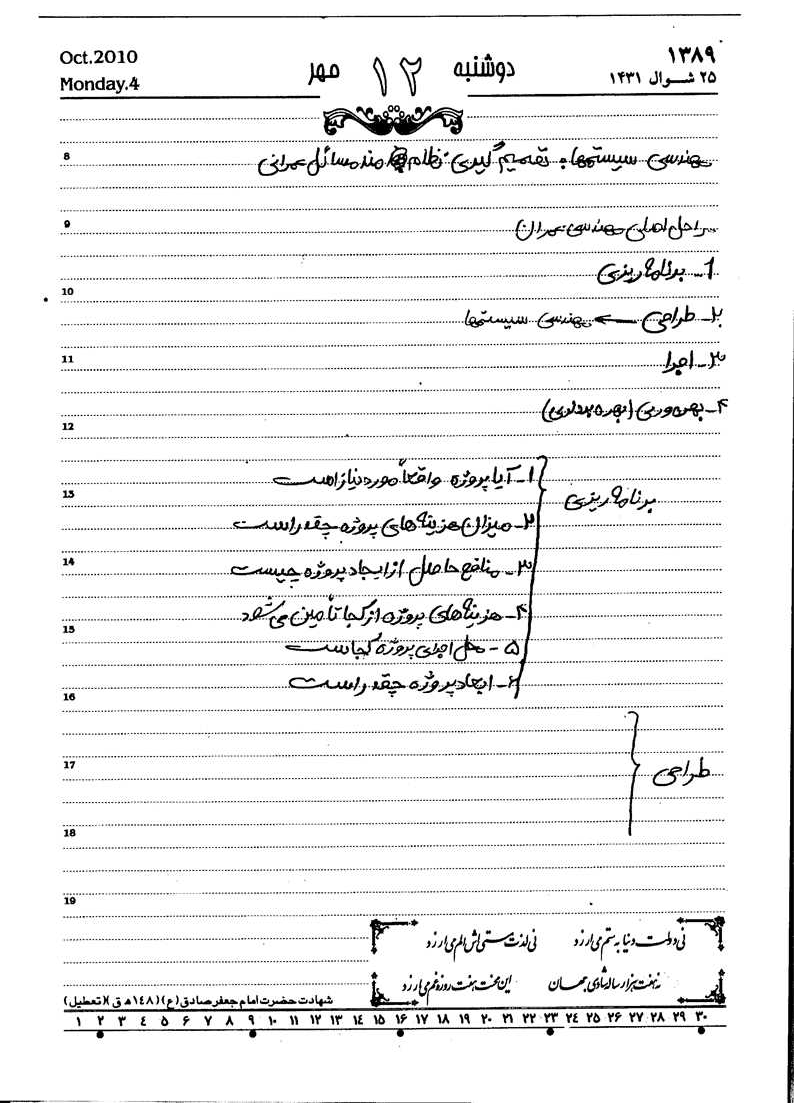 Oct.2010
Monday.4
دوشنبه ۱۲ مهر
۱۳۸۹
۲۵ شوال ۱۴۳۱
8
مهندسی سیستمها: تصمیم گیری نظام مند مسائل عمرانی
9
مراحل اصلی مهندسی عمران
۱- برنامه ریزی
10
۲- طراحی ← مهندسی سیستمها
11
۳- اجرا
۴- بهره وری (بهره برداری)
12
برنامه ریزی
۱- آیا پروژه واقعاً مورد نیاز است
13
۲- میزان هزینه های پروژه چقدر است
14
۳- منافع حاصل از ایجاد پروژه چیست
۴- هزینه های پروژه از کجا تأمین می شود
15
۵- محل اجرای پروژه کجاست
۶- ابعاد پروژه چقدر است
16
17
طراحی
18
19
نی دولت دنیا به ستم می ارزد نی لذت مستی اش الم می ارزد
نه هفت هزار ساله شادی جهان این محنت هفت روزه غم می ارزد
شهادت حضرت امام جعفر صادق (ع) (۱۴۸ ه ق) (تعطیل)
۱ ۲ ۳ ٤ ۵ ۶ ۷ ۸ ۹ ۱۰ ۱۱ ۱۲ ۱۳ ۱٤ ۱۵ ۱۶ ۱۷ ۱۸ ۱۹ ۲۰ ۲۱ ۲۲ ۲۳ ۲٤ ۲۵ ۲۶ ۲۷ ۲۸ ۲۹ ۳۰